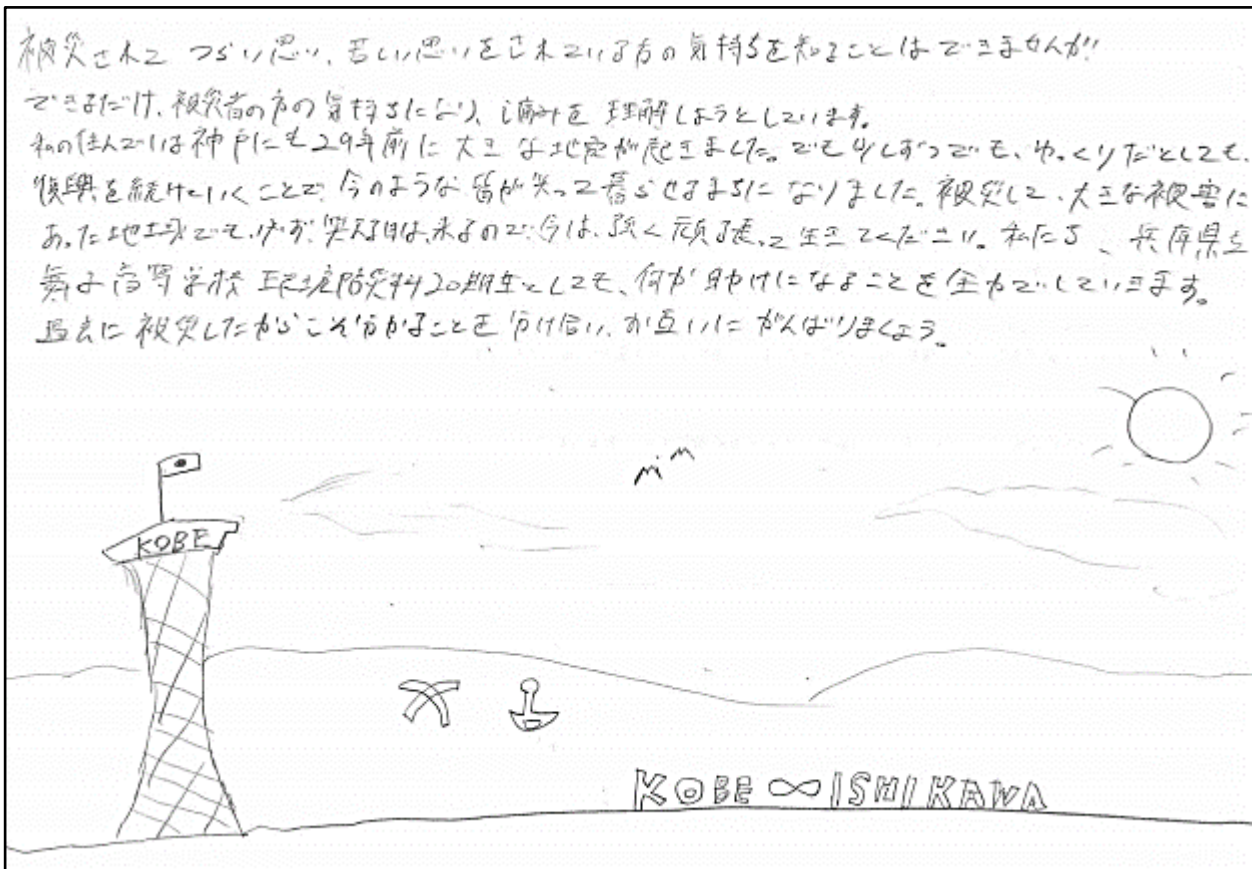 被災されて つらい思い、苦しい思いをされている方の気持ちを知ることはできませんが、
できるだけ、被災者の方の気持ちになり、痛みを理解しようとしています。
私の住んでいる神戸にも29年前に大きな地震が起きました。でも少しずつでも、ゆっくりだとしても、
復興を続けていくことで、今のような皆が笑って暮らせるまちになりました。被災して、大きな被害に
あった地域でも、必ず、笑える日は、来るので、今は、強く頑張って生きてください。私たち、兵庫県立
舞子高等学校 環境防災科20期生としても、何か助けになることを全力でしていきます。
過去に被災したからこそ分かることを分け合い、お互いにがんばりましょう。
KOBE
KOBE ∞ ISHIKAWA